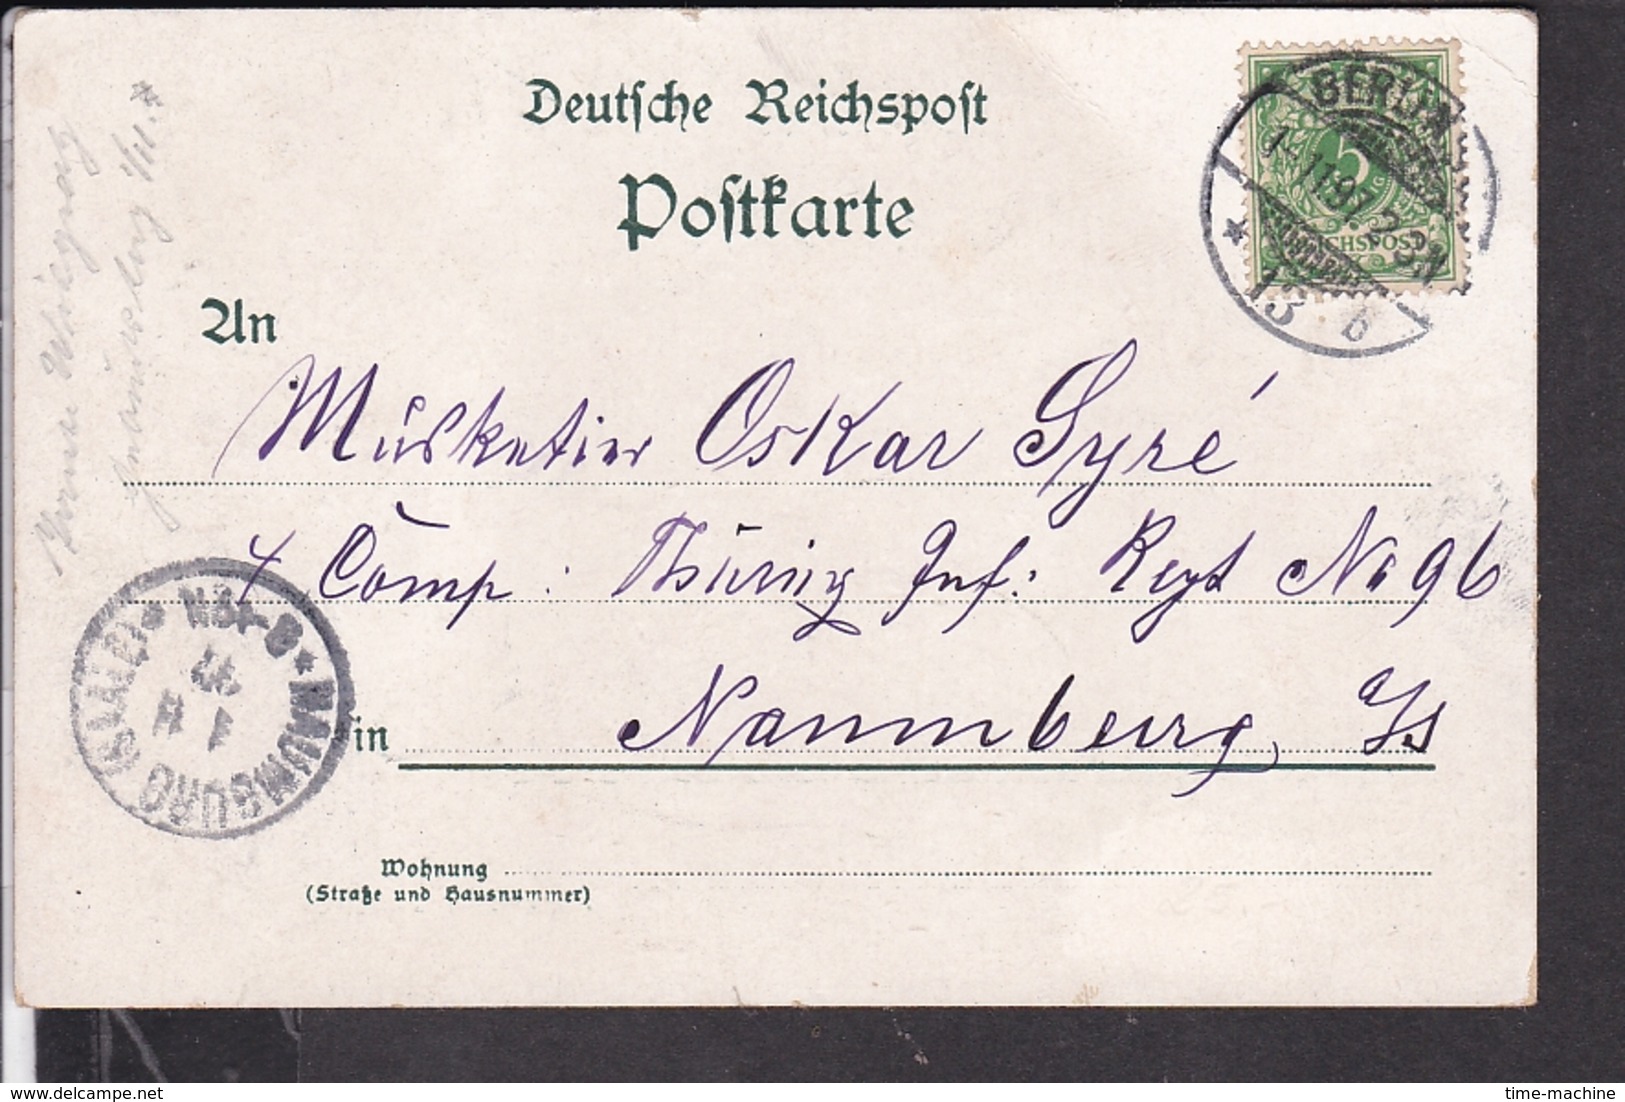 Deutsche Reichspost
Postkarte
BERLIN
1-11.97.2-3N
* 13 b
5
REICHSPOST
An
Musketier Oskar Syré
4 Comp: Thüring Inf: Regt No 96
in Naumburg a/s
Wohnung
(Straße und Hausnummer)
* NAUMBURG (SAALE) *
1 11
97
8-9N
time-machine